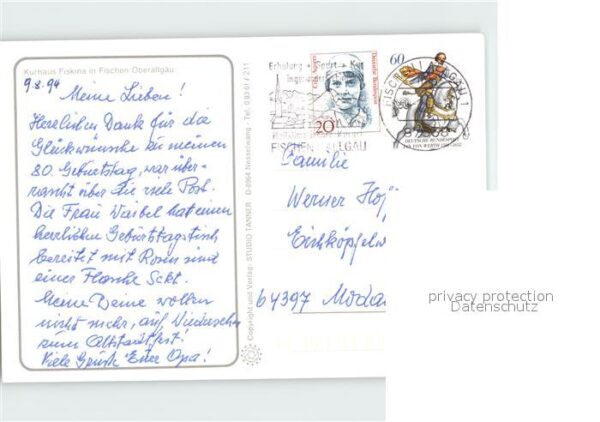 Kurhaus Fiskina in Fischen Oberallgäu
9.8.94
Meine Lieben!
Herzlichen Dank für die
Glückwünsche zu meinem
80. Geburtstag, war über-
rascht über die viele Post.
Die Frau Waibel hat einen
herrlichen Geburtstagstisch
bereitet mit Rosen und
einer Flasche Sekt.
Meine Beine wollen
nicht mehr, auf Wiedersehn
zum Altstadtfest!
Viele Grüße Euer Opa!
Copyright und Verlag: STUDIO TANNER · D-8964 Nesselwang · Tel. 08361/211
Erholung + Sport + Kur
FISCHEN ALLGÄU
Deutsche Bundespost
20
60
FISCHEN I. ALLGÄU 1
DEUTSCHE BUNDESPOST
Familie
Werner Hof
64397 Modau
privacy protection
Datenschutz